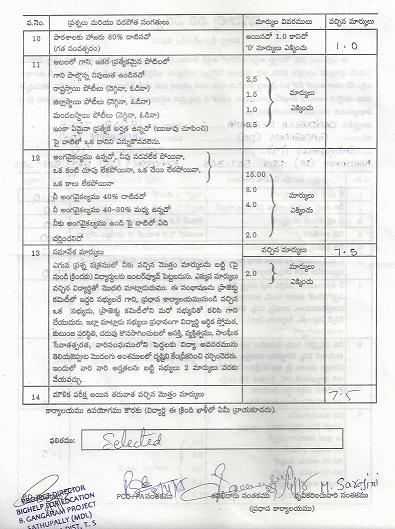 వ.నెం. ప్రశ్నలు మరియు పరపోత సంగతులు మార్కుల వివరములు వచ్చిన మార్కులు
10 పాఠశాలకు హాజరు 80% దాటినచో అయినచో 1.0 కానిచో 1.0
(గత సంవత్సరం) '0' మార్కులు ఎక్కించు
11 ఆటలలో గాని, ఇతర ప్రత్యేకమైన పోటీలలో
గాని పాల్గొన్న నిపుణత ఉండినచో 2.5
రాష్ట్రస్థాయి పోటీలు (నెగ్గినా, ఓడినా) 1.5 మార్కులు
జిల్లాస్థాయి పోటీలు (నెగ్గినా, ఓడినా) 1.0 ఎక్కించు
మండలస్థాయి పోటీలు (నెగ్గినా, ఓడినా) 0.5
ఇంకా ఏమైనా ప్రత్యేక అర్హత ఉన్నచో (ఋజువు చూపించి)
పై వాటిలో ఒక దానిని ఎన్నుకొనవలెను.
12 అంగవైకల్యము ఉన్నచో, నీవు నడవలేక పోయినా,
ఒక కంటి చూపు లేకపోయినా, ఒక చేయి లేకపోయినా, 15.00
ఒక కాలు లేకపోయినా 8.0
నీ అంగవైకల్యము 40% దాటినచో మార్కులు
నీ అంగవైకల్యము 40-80% మధ్య ఉన్నచో 4.0 ఎక్కించు
నీకు అంగవైకల్యము ఉండి పై వాటిలో ఏది
వర్తించనిచో 2.0
13 సమావేశ మార్కులు వచ్చిన మార్కులు 7.5
ఎగువ ప్రశ్న పత్రములో నీకు వచ్చిన మొత్తం మార్కులను బట్టి (పై మార్కులు
నుండి క్రిందకు) విద్యార్థులకు ఇంటర్వ్యూవ్ పెట్టబడును. ఎక్కువ మార్కులు 2.0 ఎక్కించు
వచ్చిన విద్యార్థితో మొదట మాట్లాడుదుము. ఈ సంభాషణను ప్రాజెక్టు
కమిటీలో ఇద్దరి సభ్యులచే గాని, ప్రధాన కార్యాలయమునుండి వచ్చిన
ఒక సభ్యుడు, ప్రాజెక్టు కమిటీలోని మరో సభ్యునితో కలిసి గాని
చేయుదురు. ఇట్లా మాట్లాడు సభ్యులు ప్రధానంగా విద్యార్థి ఆర్థిక స్తోమత,
కుటుంబ పరిస్థితి, చదువు కొనసాగించుటలో ఆసక్తి, వ్యక్తిత్వము, సాంఘిక
సేవాతత్పరత, వారికుటుంబములోని పెద్దలకు విద్యా అవసరమును
తెలియజెప్పుట మొదలగు అంశములలో దృష్టిని కేంద్రీకరించి చర్చించెదరు.
ఇందులో వారి వారి అర్హతలను బట్టి సభ్యులు 2 మార్కులు వరకు
వేయవచ్చు.
14 మౌలిక పరీక్ష అయిన తరువాత వచ్చిన మొత్తం మార్కులు 7.5
కార్యాలయము ఉపయోగము కొరకు (విద్యార్థి ఈ క్రింది ఖాళీలో ఏమీ వ్రాయకూడదు).
ఫలితము: Selected
M. Sarojini
DIRECTOR
BIGHELP FOR EDUCATION
B. GANGARAM PROJECT
SATHUPALLY (MDL)
DIST, T. S
PCO / PA సంతకము తనిఖీదారు సంతకము ధృవీకరించువారి సంతకము
(ప్రధాన కార్యాలయము)